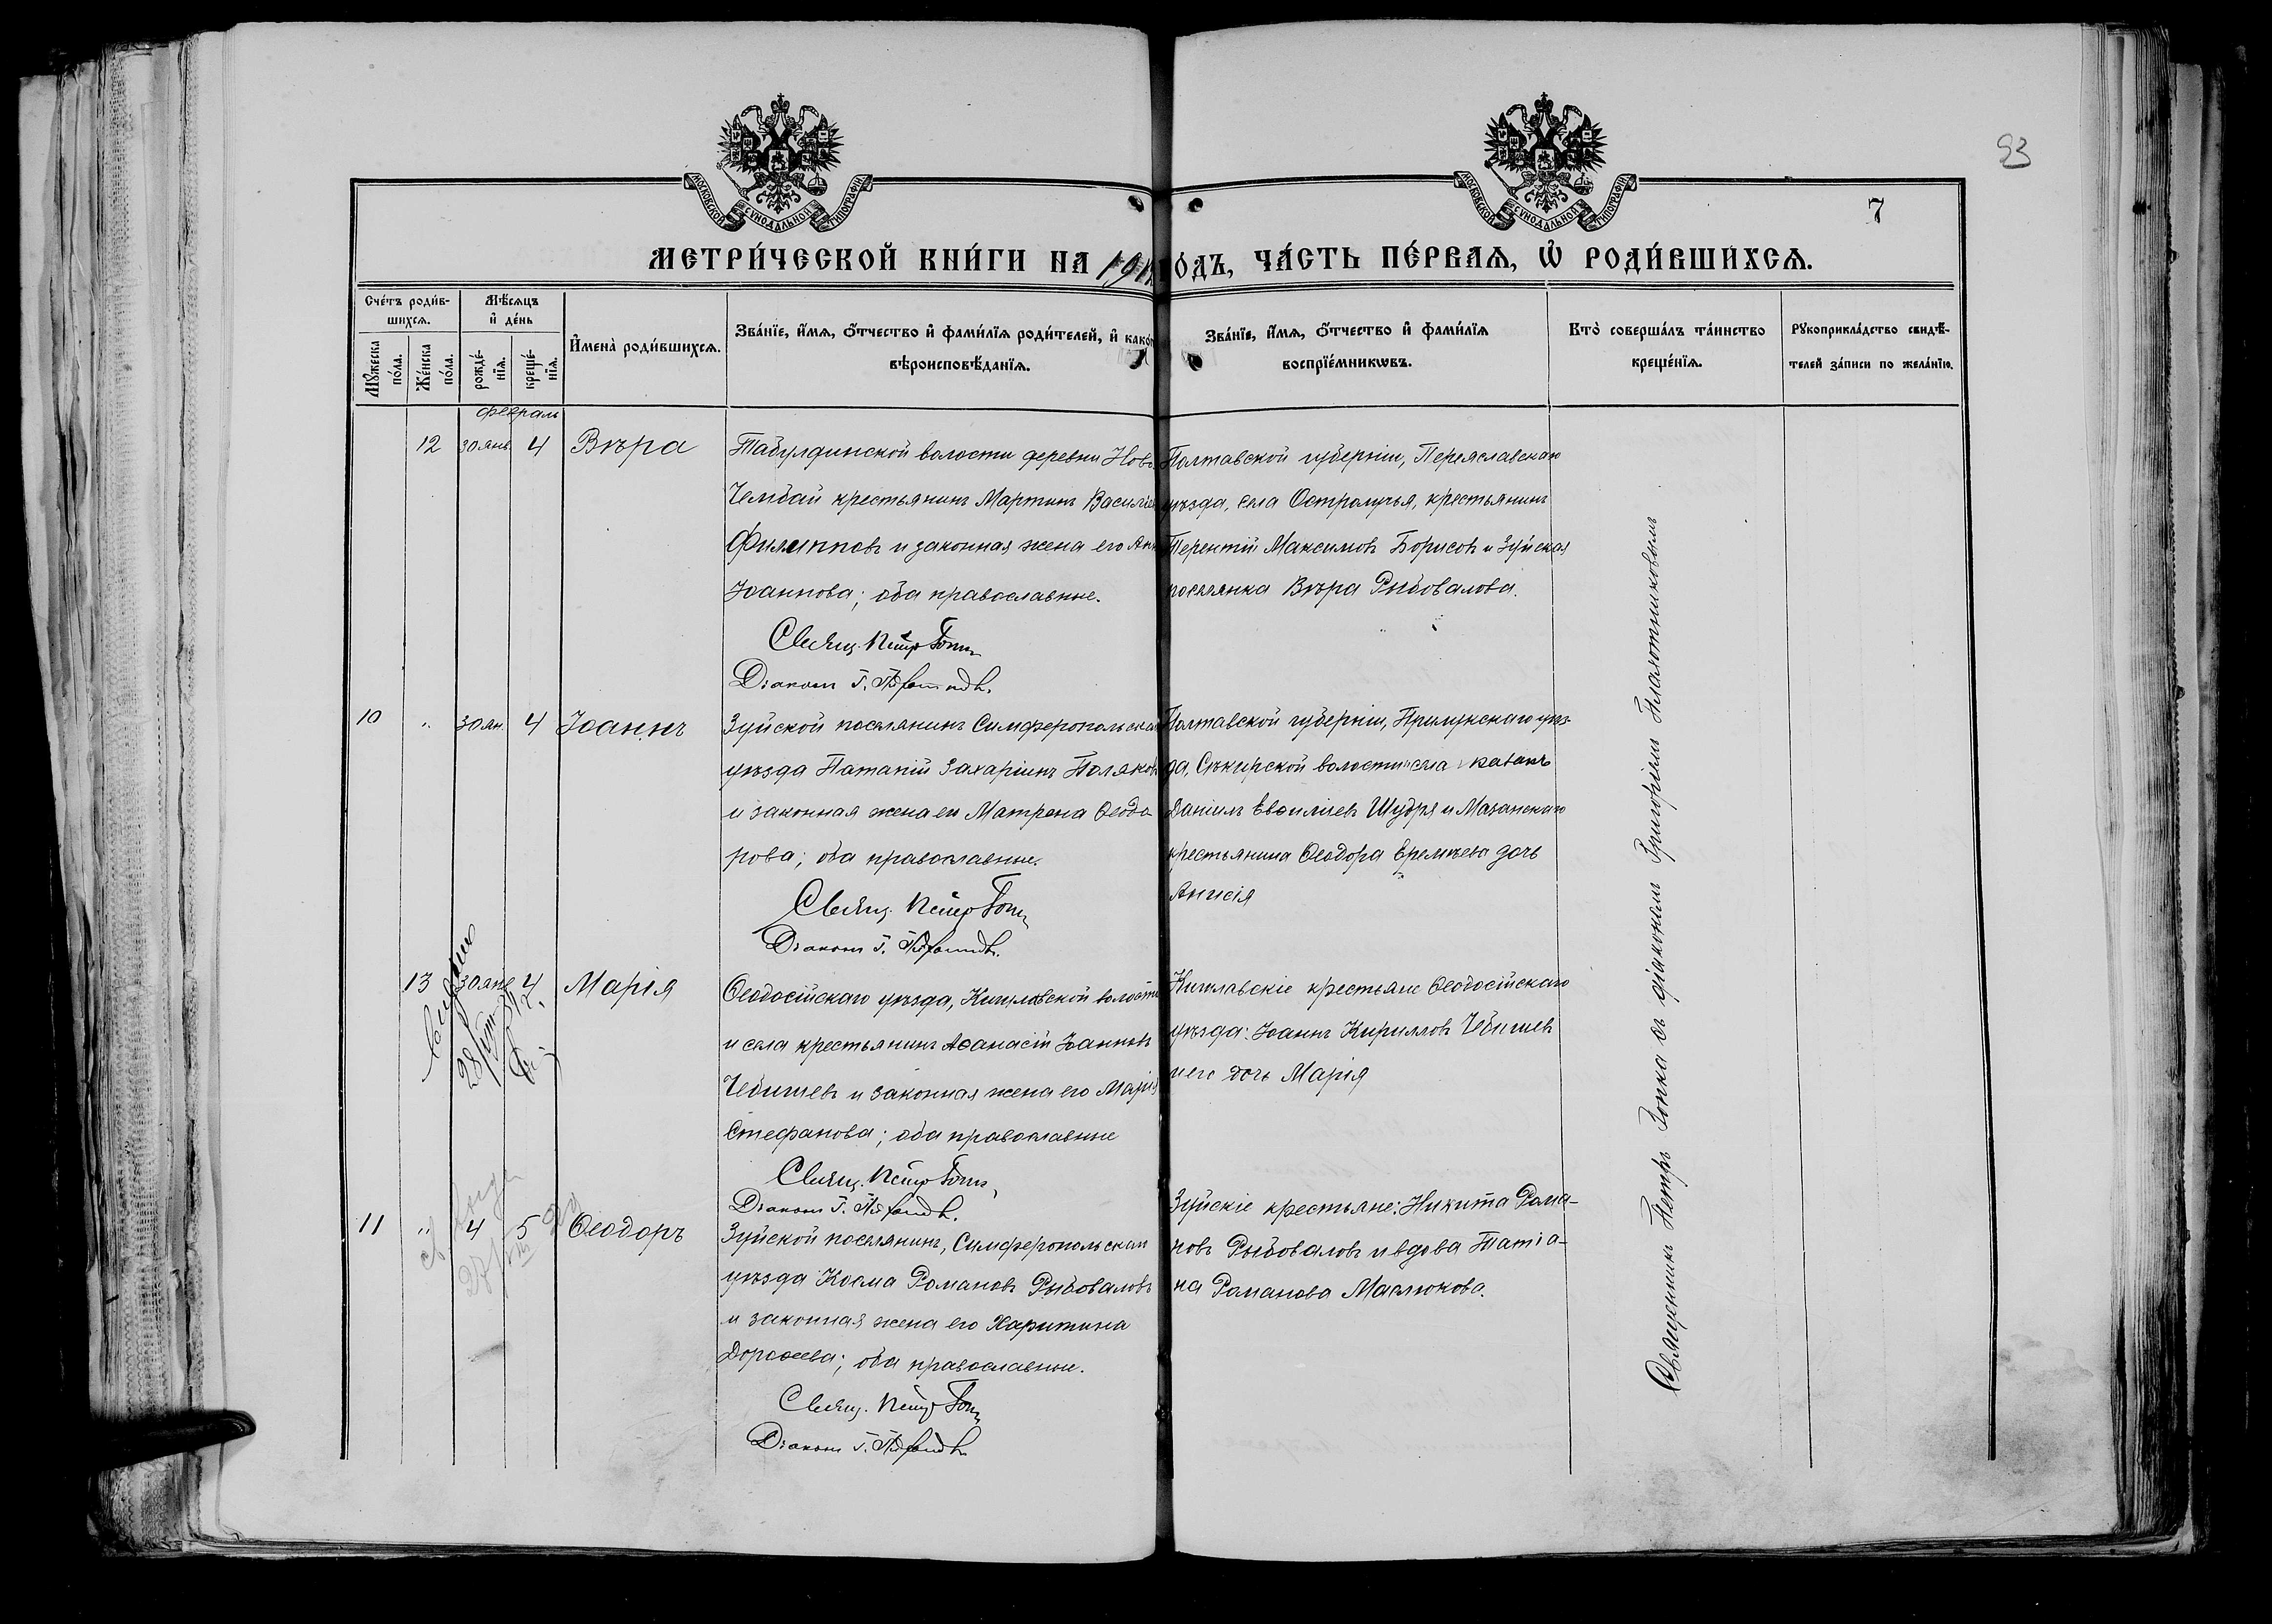 93
7
МОСКОВСКОЙ СѴНОДАЛЬНОЙ ТИПОГРАФІИ
МОСКОВСКОЙ СѴНОДАЛЬНОЙ ТИПОГРАФІИ
МЕТРИ́ЧЕСКОЙ КНИ́ГИ НА 191 О́ДЪ, ЧА́СТЬ ПЕ́РВАѦ, Ѡ҆ РОДИ́ВШИХСѦ.
Сче́тъ роди́в-
шихсѧ.
Мꙋ́жеска по́ла.
Же́нска по́ла.
Мѣ́сѧцъ
и҆ де́нь
рожде́-
нїѧ.
креще́-
нїѧ.
И҆мена̀ роди́вшихсѧ.
Зва́нїе, и҆́мѧ, ѻ҆́тчество и҆ фами́лїѧ роди́телей, и҆ како́
вѣроисповѣ́данїѧ.
Зва́нїе, и҆́мѧ, ѻ҆́тчество и҆ фами́лїѧ
воспрїе́мникѡвъ.
Кто̀ соверша́лъ та́инство
креще́нїѧ.
Рꙋкоприкла́дство свидѣ́-
телей за́писи по жела́нїю.
февраль
12 30 янв. 4 Вѣра
Табулдинской волости деревни Ново
Чембай крестьянинъ Мартинъ Василіев
Филипповъ и законная жена его Анн
Іоаннова; оба православные.
Свящ. Петръ
Діаконъ Г.
Полтавской губерніи, Переяславскаго
уѣзда, села Остролучья, крестьянинъ
Терентій Максимовъ Борисовъ и Зуйская
поселянка Вѣра Рыбовалова.
10 " 30 ян. 4 Іоаннъ
Зуйской поселянинъ Симферопольскаго
уѣзда Патапій Захаріинъ Поляковъ
и законная жена его Матрона Ѳеодо
рова; оба православные.
Свящ. Петръ
Діаконъ Г.
Полтавской губерніи, Прилукскаго уѣз-
да, Сѣкирской волости и села казакъ
Даніилъ Евѳиміевъ Шудря и Мазанскаго
крестьянина Ѳеодора Еремѣева дочь
Анисія
13 30 янв 4 Марія
Ѳеодосійскаго уѣзда, Кишлавской волости
и села крестьянинъ Аѳанасій Іоанновъ
Чебишевъ и законная жена его Марія
Стефанова; оба православные
Свящ. Петръ
Діаконъ Г.
Кишлавскіе крестьяне Ѳеодосійскаго
уѣзда: Іоаннъ Кирилловъ Чебишевъ
и его дочь Марія
11 " 4 5 Ѳеодоръ
Зуйской поселянинъ, Симферопольскаго
уѣзда Косма Романовъ Рыбоваловъ
и законная жена его Харитина
Дороѳеева; оба православные.
Свящ. Петръ
Діаконъ Г.
Зуйскіе крестьяне: Никита Рома-
новъ Рыбоваловъ и вдова Татіа-
на Романова Маслюкова.
Священникъ Петръ съ діакономъ Григоріемъ Плахотниковымъ